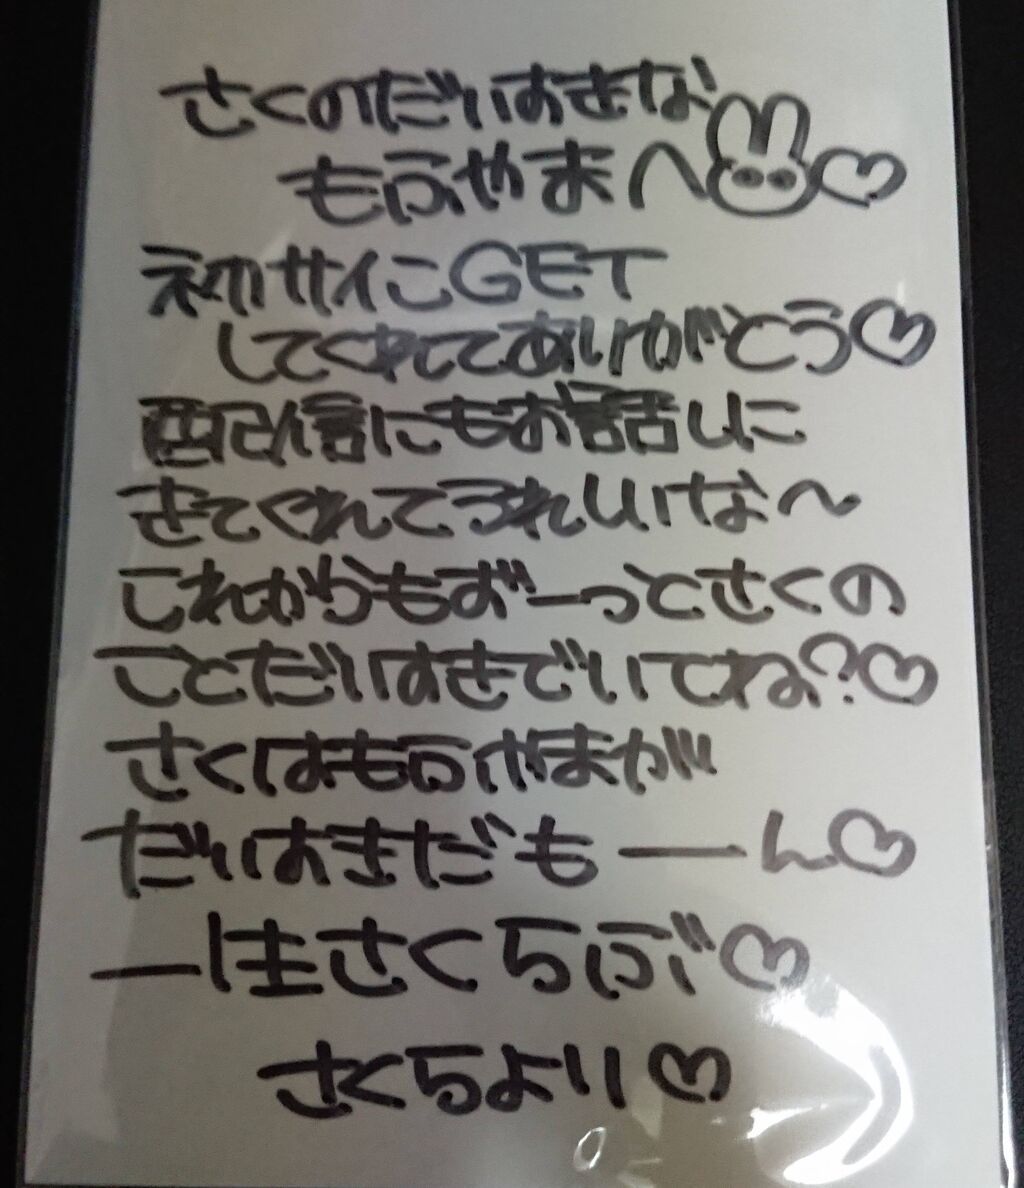 さくのだいすきな
もふやまへ♡
初サインGET
してくれてありがとう♡
配信にもお話しに
きてくれてうれしいな〜
これからもずーっとさくの
ことだいすきでいてね?♡
さくはもふやまが
だいすきだもーん♡
一生さくらぶ♡
さくらより♡